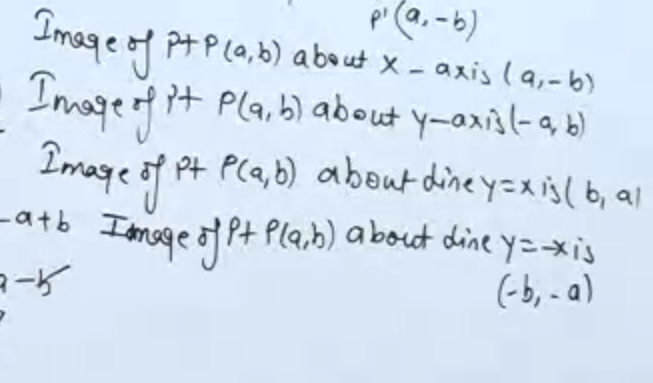 P'(a,-b)
Image of Pt P(a,b) about x-axis (a,-b)
Image of Pt P(a,b) about y-axis (-a,b)
Image of Pt P(a,b) about line y=x is (b, a)
-a+b Image of Pt P(a,b) about line y=-x is
(-b,-a)
a-b